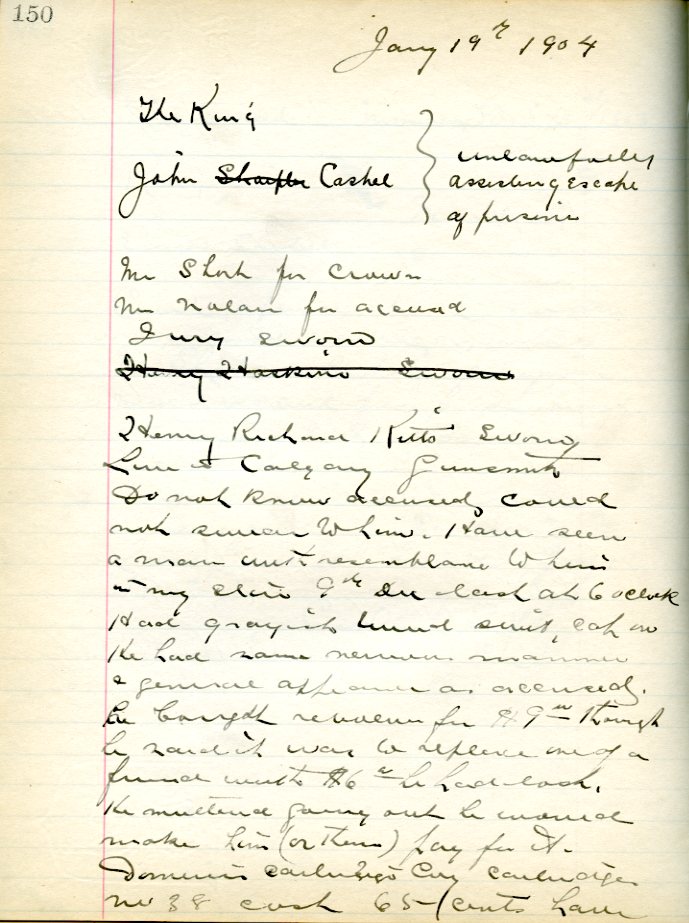 150
Jany 19th 1904
The King
John Sharples Cashel
unlawfully
assisting escape
of prisoner
Mr Short for Crown
Mr Nolan for accused
Jury sworn
Henry Haskins Sworn
Henry Richard Kitto Sworn
Live at Calgary Gunsmith
Do not know accused, could
not swear to him. Have seen
a man with resemblance to him
in my store 9th Dec last at 6 oclock
Had grayish suit, cap on
He had same nervous manner
& general appearance as accused.
he bought revolver for $9 though
he said it was to replace one of a
friend worth $6 he had lost.
He muttered going out he would
make him (or them) pay for it.
Dominion Cartridge Coy cartridges
no 38 cost 65 cents have